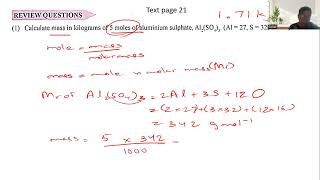 Text page 21
1.71k
REVIEW QUESTIONS
(1) Calculate mass in kilograms of 5 moles of aluminium sulphate, Al₂(SO₄)₃ (Al = 27, S = 32
mole = mass
molar mass
mass = mole × molar mass (Mr)
Mr of Al₂(SO₄)₃ = 2Al + 3S + 12O
= (2×27) + (3×32) + (12×16)
= 342 gmol⁻¹
mass = 5 × 342 =
1000